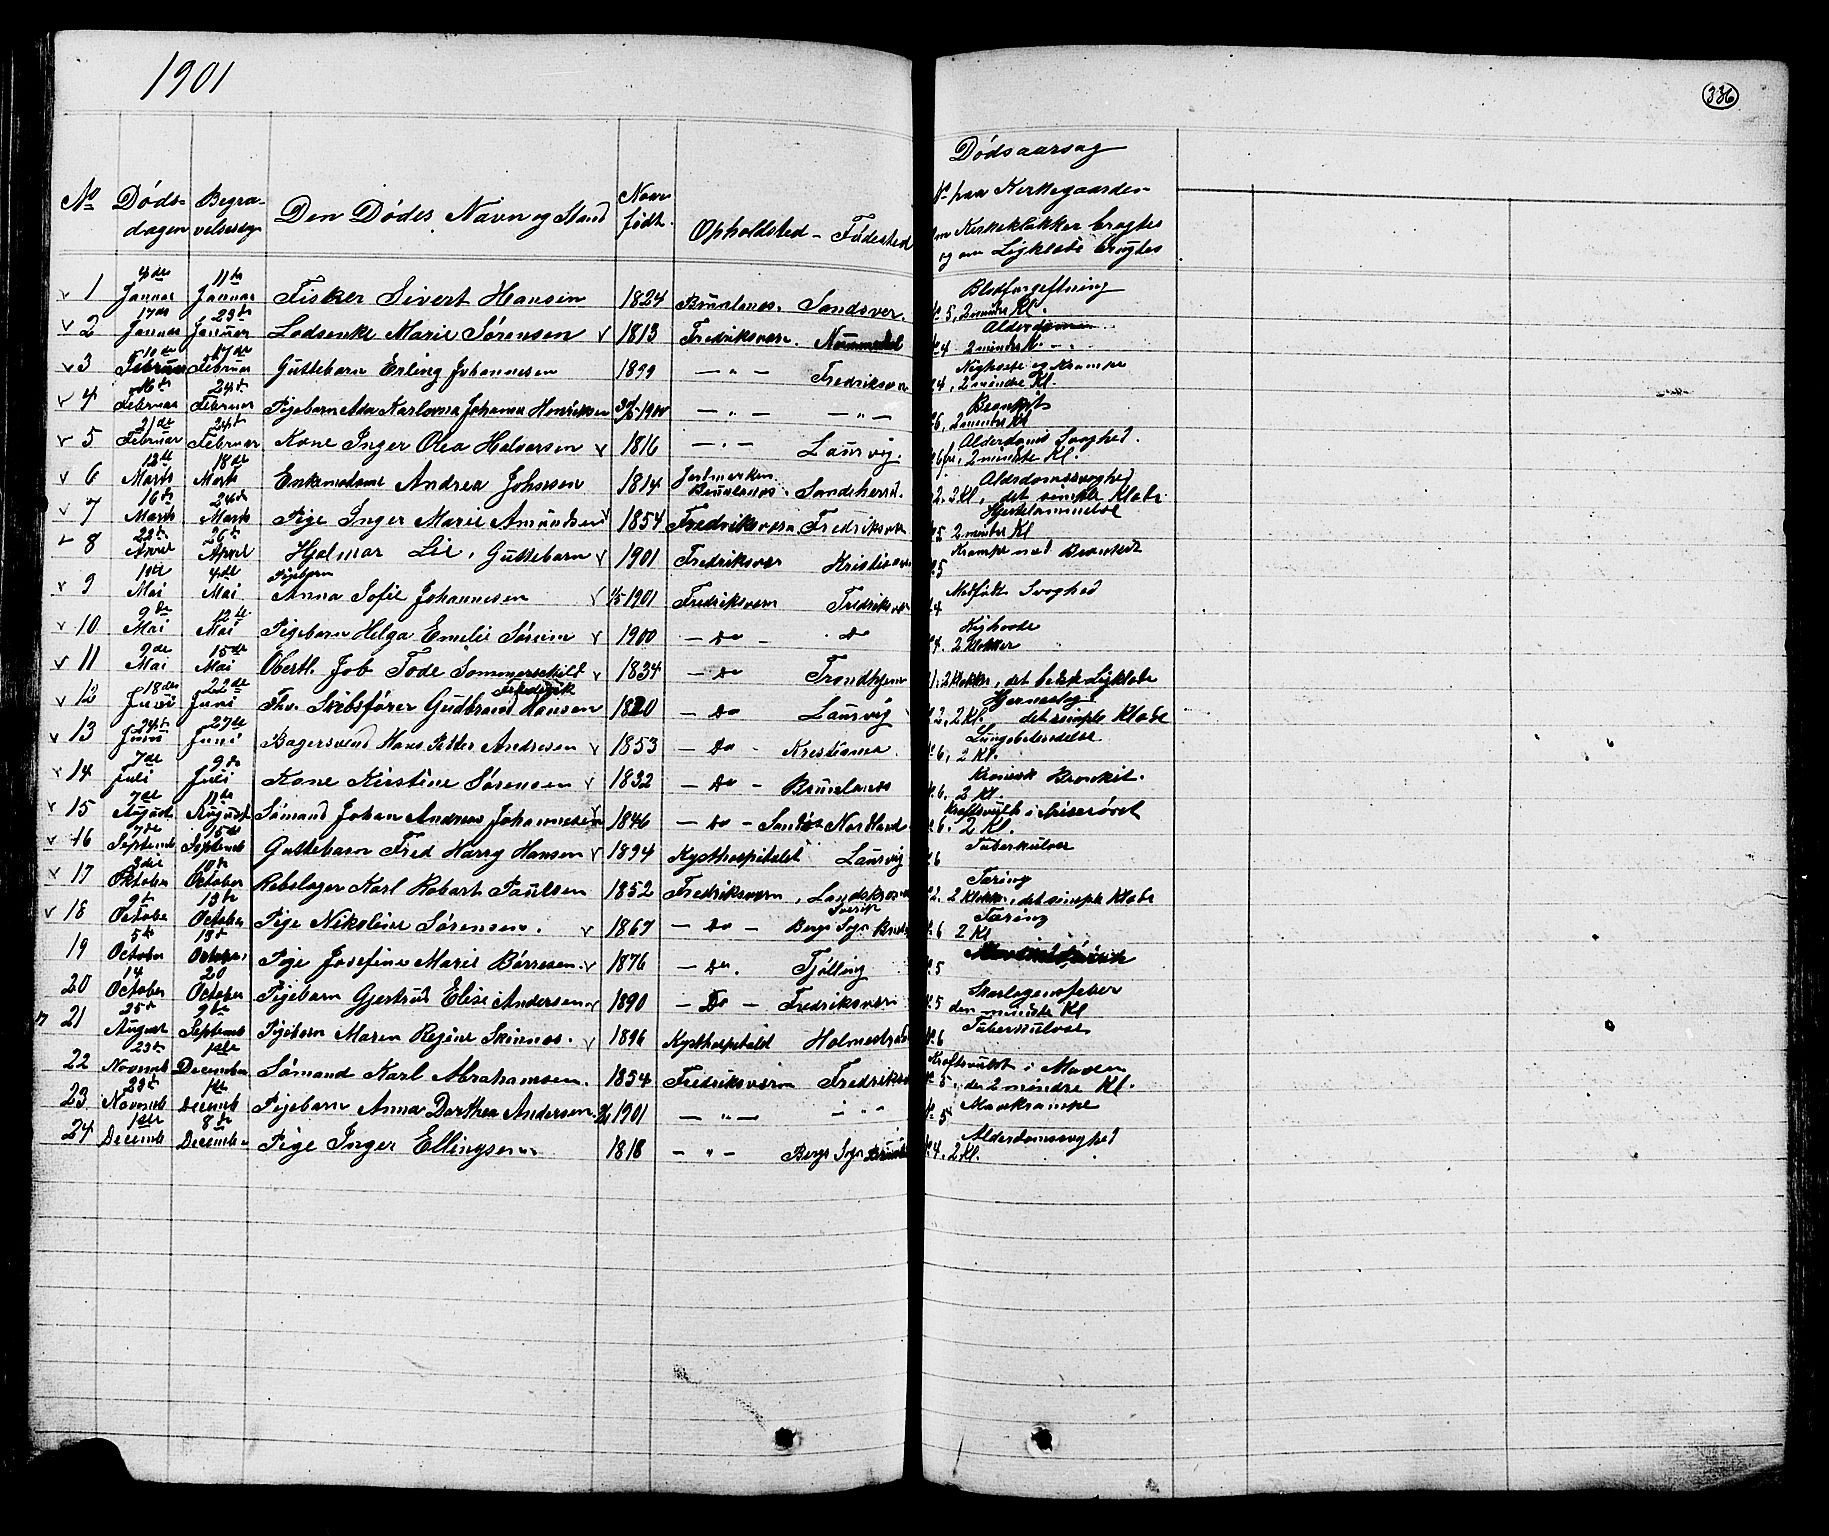 1901
336
No Døds- dagen Begra- velsesdag Den Dødes Navn og Stand Naar født. Opholdsted - Fødested Dødsaarsag
No paa Kirkegaarden
om Kirkeklokker brugtes
og om Ligklæde brugtes
1 4de Januar 11te Januar Fisker Sivert Hansen 1824 Brunlanæs. Sandsver. Blodforgiftning
5, 2 mindre Kl.
2 17de Januar 23de Januar Lodsenke Marie Sørensen 1813 Fredriksværn. Nummedal Alderdommen
4 2 mindre K. - „ -
3 10de Februar 17de Februar Guttebarn Erling Johannesen 1899 - „ - Fredriksværn Kighoste og Krampe
4, 2 mindre Kl.
4 16de Februar 24de Februar Pigebarn Ada Karlovna Johanna Henriksen 1900 - „ - - „ - Bronkit
6, 2 mindre Kl
5 21de Februar 24de Februar Kone Inger Olea Halvorsen 1816 - „ - Laurvig. Alderdoms Svaghed.
2 mindste Kl.
6 12te Marts 18de Marts Enkemadame Andrea Johnsen 1814 Brunlanæs. Sandeherred. Alderdomssvaghed
2. 2 Kl, det simple Klæde
7 16de Marts 24de Marts Pige Inger Marie Amundsen 1854 Fredriksværn Fredriksværn Hjertelammelse
5 2 mindre Kl
8 22de April 26de April Hjalmar Lie, Guttebarn 1901 Fredriksværn Kristiania Krampe med Bronkit
5
9 1ste Mai 4de Mai Pigebarn Anna Sofie Johannesen 1/5 1901 Fredriksværn Fredriksværn Medfødt Svaghed
4
10 9de Mai 12te Mai Pigebarn Helga Emilie Sørum 1900 - Do - Do Kighoste
4. 2 Klokker
11 9de Mai 15de Mai Obertl. Job Tode Sommerschild 1834 - Do Trondhjem
1. 2 Klokker, det bedste Ligklæde
12 18de Juni 22de Juni Fhv. Skibsfører Gudbrand Fredrik Hansen 1820 - Do Laurvig Hjerneslag
2, 2 Kl. det simple Klæde
13 24de Juni 27de Juni Bagersvend Hans Petter Andresen 1853 - Do - Kristiania. Lungebetendelse
6, 2 Kl.
14 7de Juli 9de Juli Kone Kirstine Sørensen 1832 - Do - Brunlanæs Kronisk Bronkit.
6. 2 Kl.
15 7de August 11te August Sømand Johan Andreas Johannesen 1846 - Do - Nordland Kræftsvulst i Spiserøret
6. 2 Kl.
16 7de Septemb 15de Septemb Guttebarn Fred Harry Hansen 1894 Kysthospitalet Laurvig Tuberkulose
6
17 3die Oktober 10de October Rebslager Karl Robert Paulsen 1852 Fredriksværn, Landskrona Sverik Tæring
2. 2 Klokker, det simple Klæde
18 9de October 13de October Pige Nikoline Sørensen. 1867 - Do - Bergs Sogn Tæring
6 2 Kl
19 5te October 13de October Pige Josefine Marie Børresen 1876 - Do. Tjølling
5
20 14 October 20 October Pigebarn Gjertrud Elise Andersen 1890 - Do - Fredriksværn Skarlagensfeber
5 den mindste Kl
21 25de August 2de Septemb Pigebarn Maren Regine Skinnæs. 1896 Kysthospitalet Holmestrand Tuberkulose
6
22 23de Novemb 1ste December Sømand Karl Abrahamsen. 1854 Fredriksværn Fredriksværn Kræftsvulst i Maven
5, de 2 mindre Kl.
23 23de Novemb 1ste Decemb Pigebarn Anna Dorthea Andersen 1901 - „ - - „ - Mavekrampe
5
24 1ste Decemb 8de December Pige Inger Ellingsen 1818 - „ - Bergs Sogn Alderdomssvaghed
4. 2 Kl.